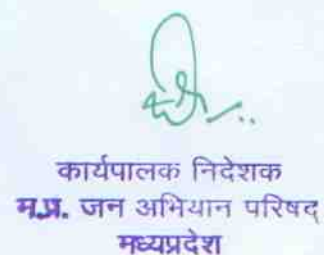 कार्यपालक निदेशक
म.प्र. जन अभियान परिषद
मध्यप्रदेश